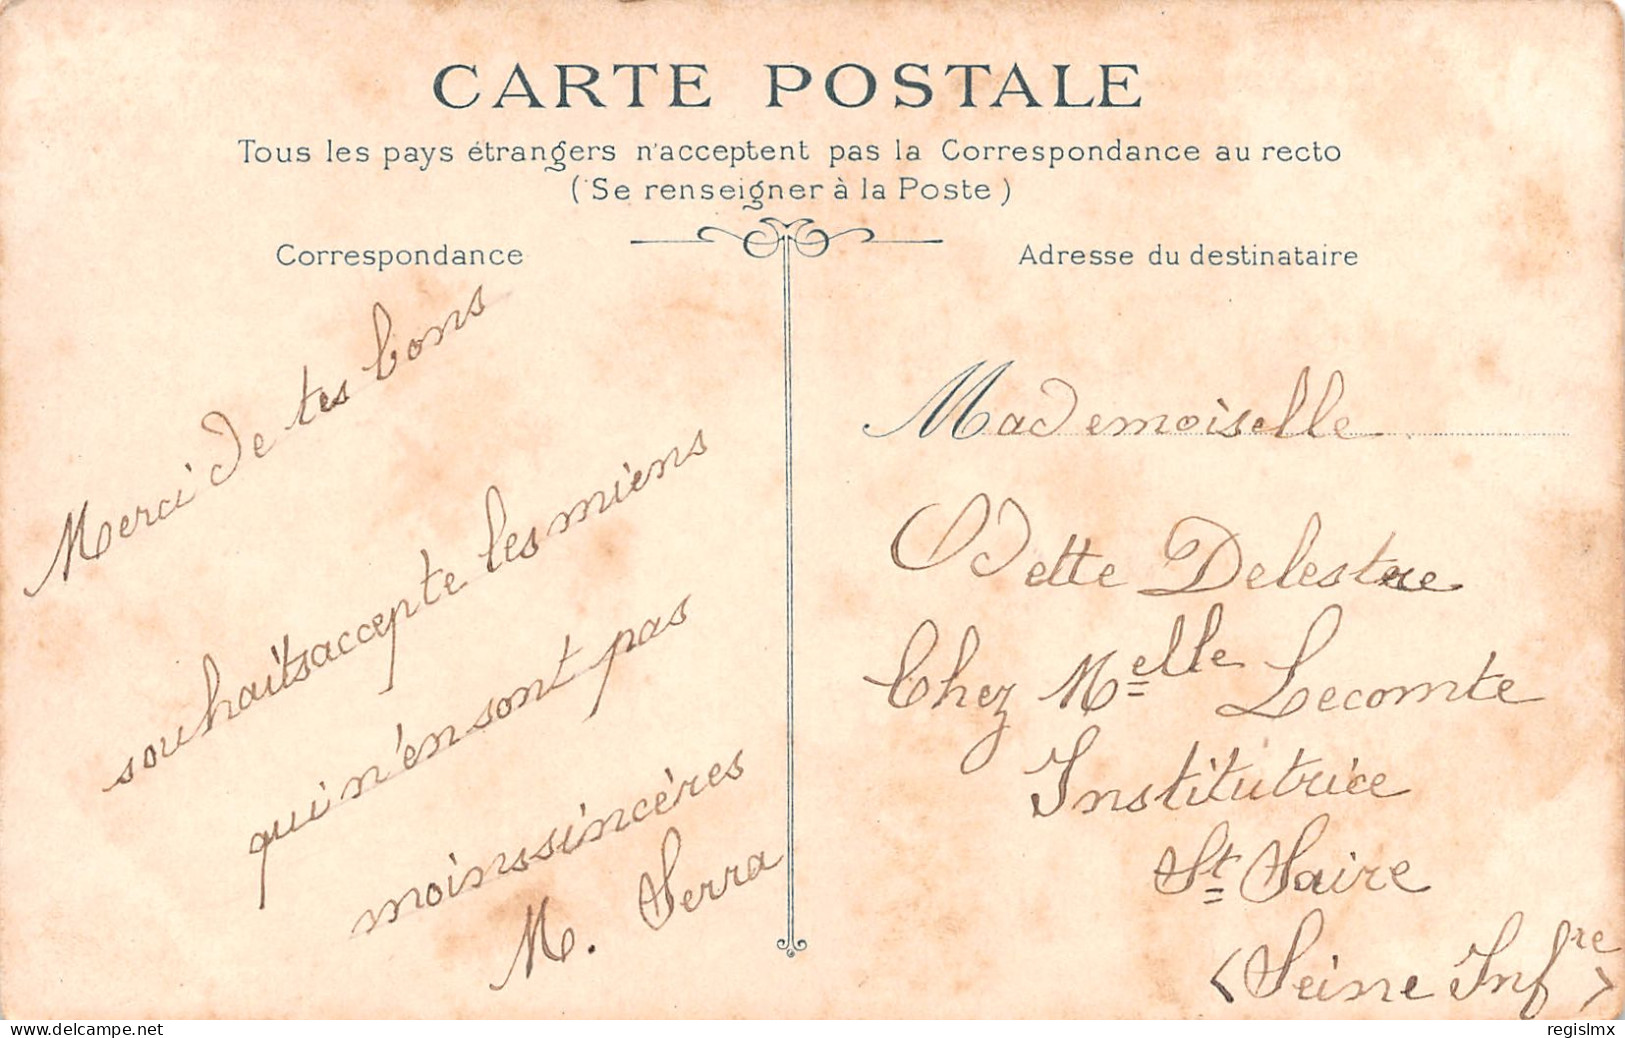 CARTE POSTALE
Tous les pays étrangers n'acceptent pas la Correspondance au recto
(Se renseigner à la Poste)
Correspondance
Merci de tes bons
souhaits accepte les miens
qui n'en sont pas
moins sincères
M. Serra
Adresse du destinataire
Mademoiselle
Odette Delestre
Chez Melle Lecomte
Institutrice
St Saire
(Seine Infre)
delcampe.net
regislmx